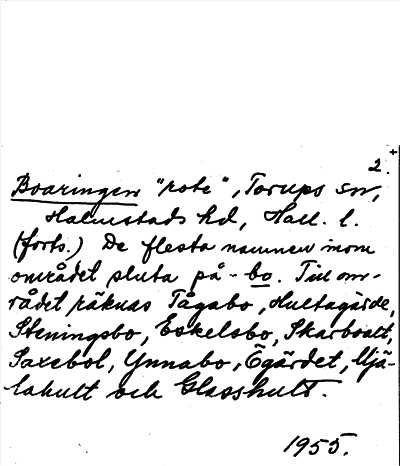 2.
Boaringen "rote", Torups sn,
Halmstads hd, Hall. l.
(forts.) De flesta namnen inom
området sluta på -bo. Till om-
rådet räknas Tågabo, Hultagärde,
Steningsbo, Eskelsbo, Skarboalt,
Saxebol, Ynnabo, Ögärdet, Mjä-
lahult och Glasshult.
1955.